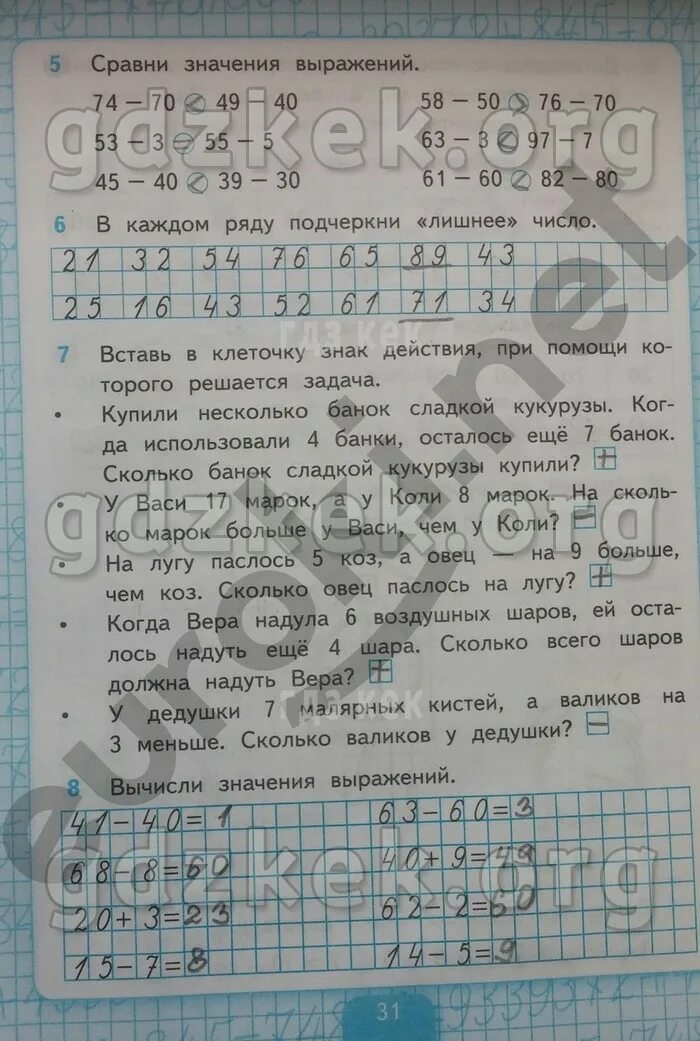 5 Сравни значения выражений.
74 − 70 < 49 − 40 58 − 50 > 76 − 70
53 − 3 = 55 − 5 63 − 3 < 97 − 7
45 − 40 < 39 − 30 61 − 60 < 82 − 80
6 В каждом ряду подчеркни «лишнее» число.
21 32 54 76 65 89 43
25 16 43 52 61 71 34
7 Вставь в клеточку знак действия, при помощи ко-
торого решается задача.
• Купили несколько банок сладкой кукурузы. Ког-
да использовали 4 банки, осталось ещё 7 банок.
Сколько банок сладкой кукурузы купили? +
• У Васи 17 марок, а у Коли 8 марок. На сколь-
ко марок больше у Васи, чем у Коли? −
• На лугу паслось 5 коз, а овец — на 9 больше,
чем коз. Сколько овец паслось на лугу? +
• Когда Вера надула 6 воздушных шаров, ей оста-
лось надуть ещё 4 шара. Сколько всего шаров
должна надуть Вера? +
• У дедушки 7 малярных кистей, а валиков на
3 меньше. Сколько валиков у дедушки? −
8 Вычисли значения выражений.
41−40=1 63−60=3
68−8=60 40+9=49
20+3=23 62−2=60
15−7=8 14−5=9
31
gdzkek.org
гдз кек
gdzkek.org
гдз кек
gdzkek.org
euroki.net